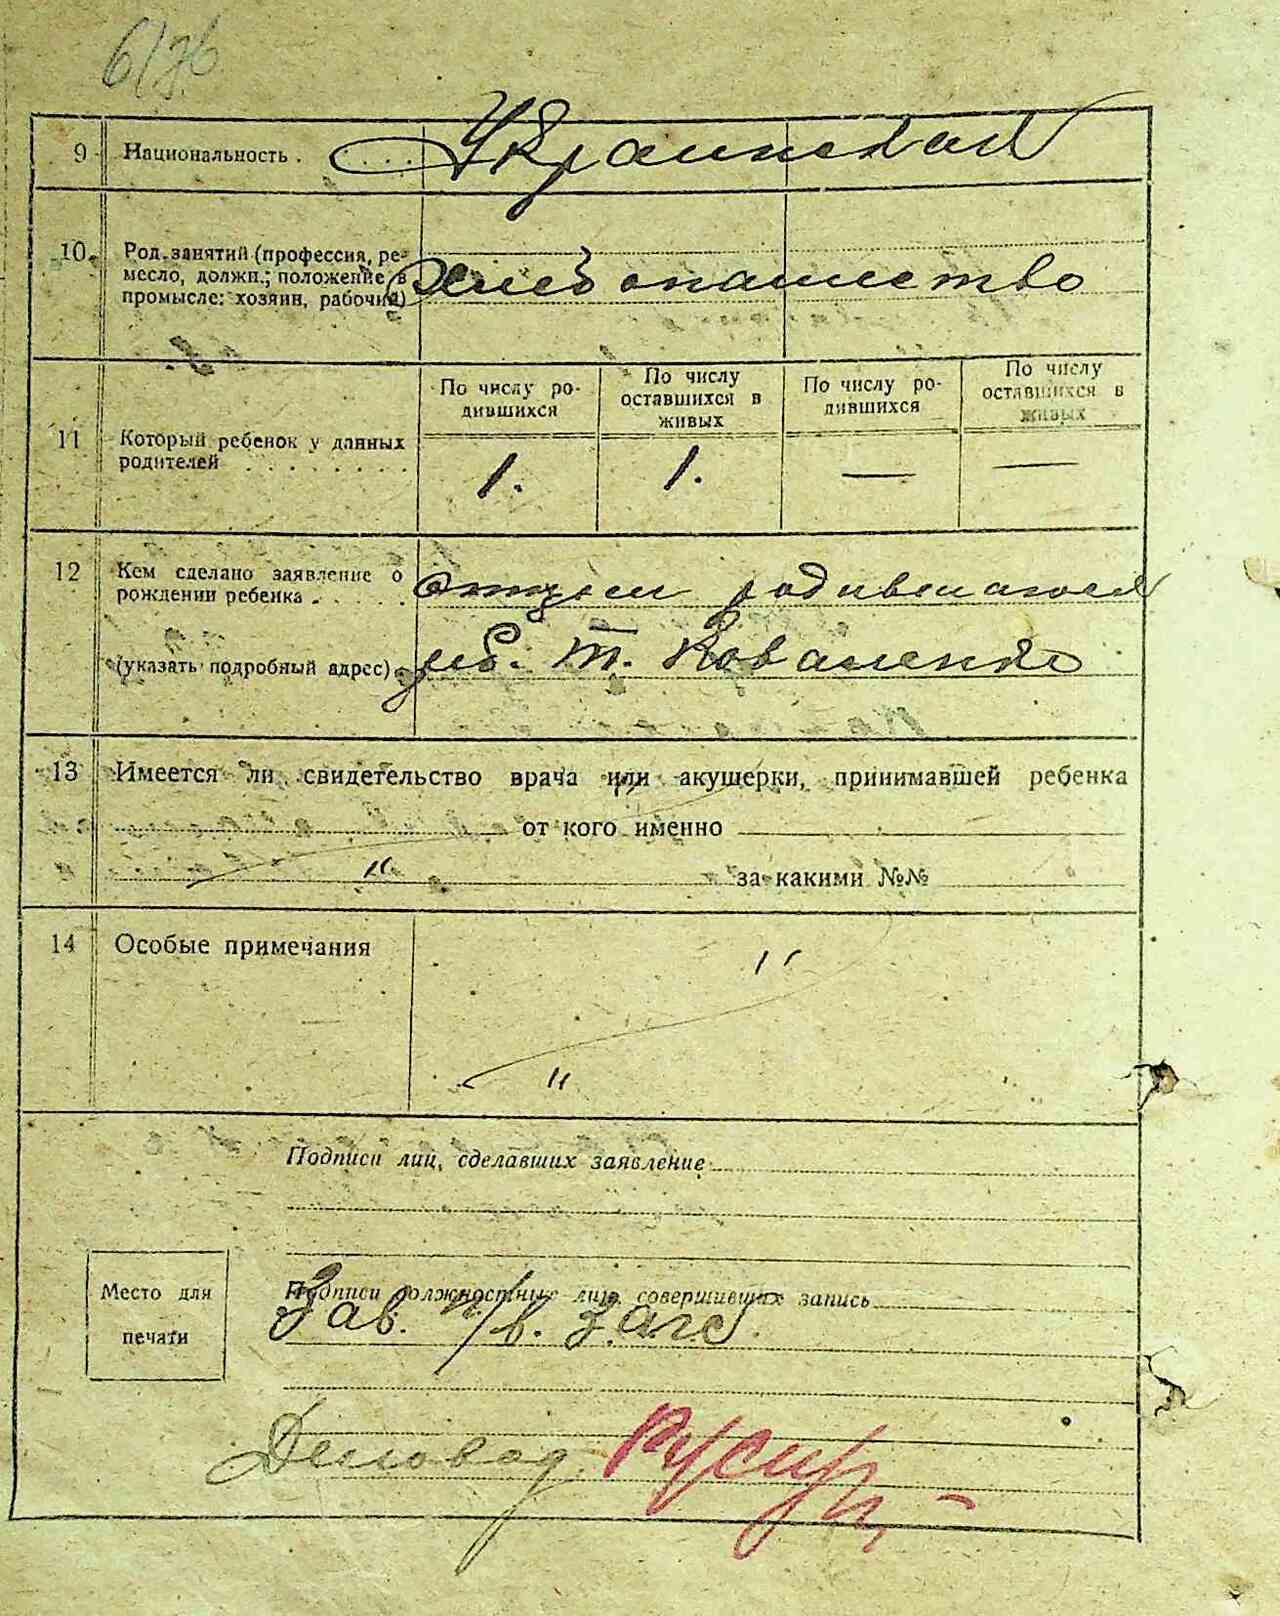 9 Национальность . . . . Украинская
10. Род занятий (профессия, ре-
месло, должн.; положение в
промысле: хозяин, рабочий)
Хлебопашество
11 Который ребенок у данных
родителей . . . . . . . .
По числу ро-
дившихся
По числу
оставшихся в
живых
По числу ро-
дившихся
По числу
оставшихся в
живых
1. 1. — —
12 Кем сделано заявление о
рождении ребенка . . . . .
отцом родившагося
(указать подробный адрес)
Т. Коваленко
13 Имеется ли свидетельство врача или акушерки, принимавшей ребенка
от кого именно
" за какими №№
14 Особые примечания "
"
Подписи лиц, сделавших заявление
Место для
печати
Подписи должностных лиц, совершивших запись
Зав. п/в. Загс
Деловод